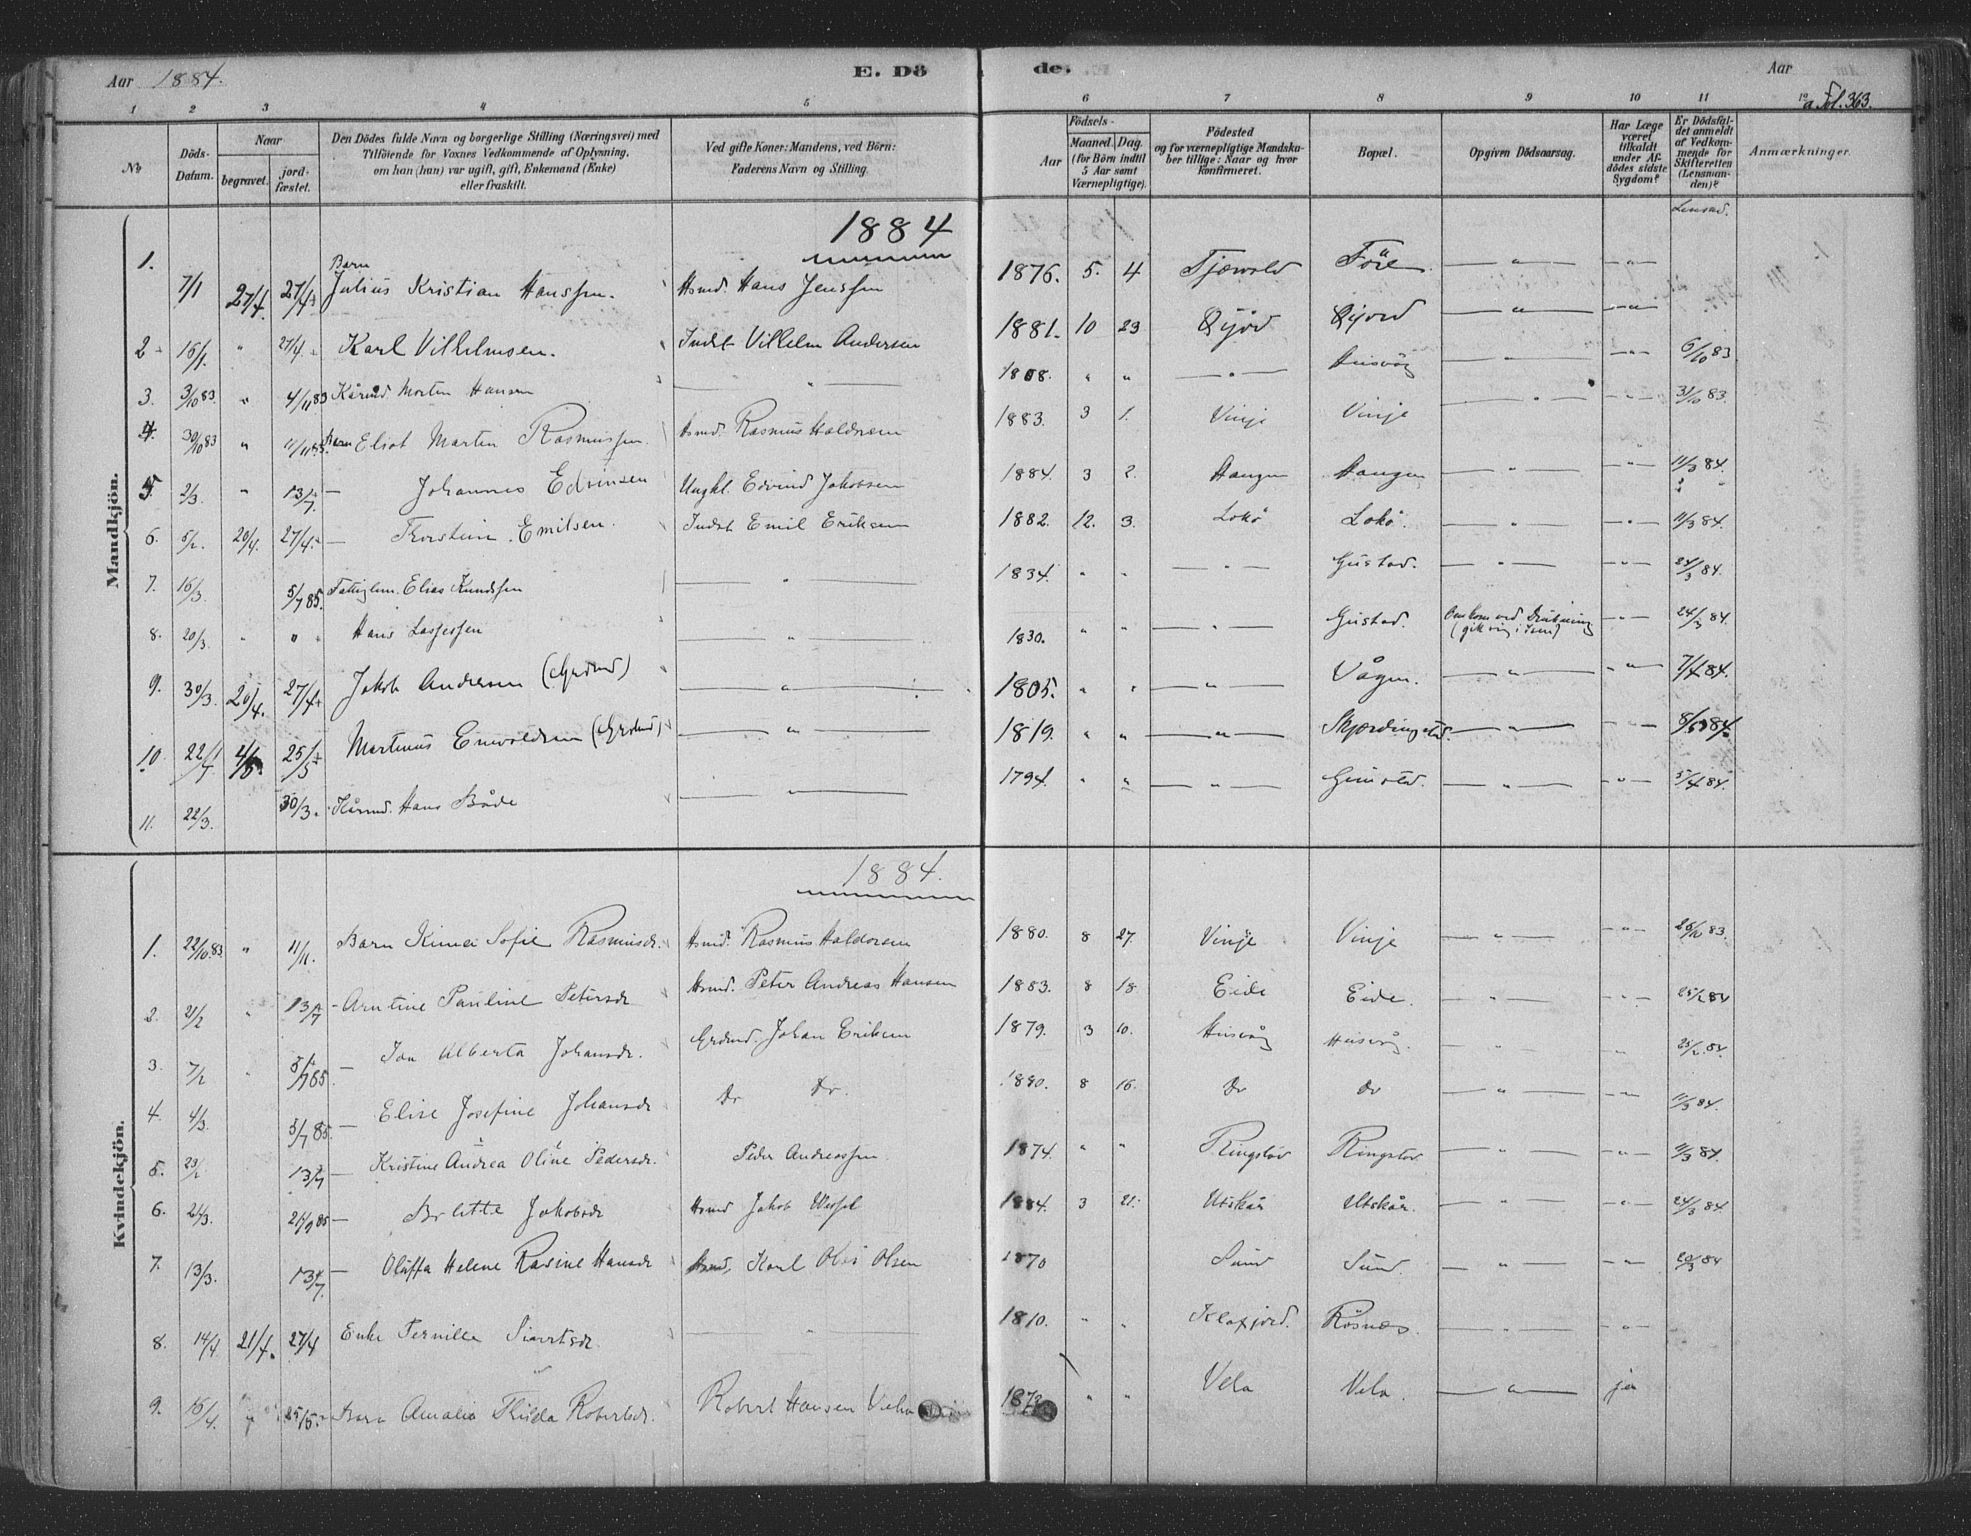 Aar 1884.
E. Dö
de.
Aar
a Fol. 363.
1 2 3 4 5 6 7 8 9 10 11 12
No
Döds-Datum.
Naar
begravet.
jord-fæstet.
Den Dödes fulde Navn og borgerlige Stilling (Næringsvei) med
Tilföiende for Voxnes Vedkommende af Oplysning,
om han (hun) var ugift, gift, Enkemand (Enke)
eller fraskilt.
Ved gifte Koner: Mandens, ved Börn:
Faderens Navn og Stilling.
Födsels-
Aar
Maaned. Dag.
(for Börn indtil
5 Aar samt
Værnepligtige).
Födested
og for værnepligtige Mandska-
ber tillige: Naar og hvor
konfirmeret.
Bopæl.
Opgiven Dödsaarsag.
Har Læge
været
tilkaldt
under Af-
dödes sidste
Sygdom?
Er Dödsfal-
det anmeldt
af Vedkom-
mende for
Skifteretten
(Lensman-
den)?
Anmærkninger.
Mandkjön.
1884
Lensmd.
1. 7/1 27/4. 27/4 Barn Julius Kristian Hanssen. Hsmd. Hans Jenssen 1876. 5. 4 Tjæwold Före — " — — " —
2 16/1. " 27/4. Karl Vilhelmsen. Indst Vilhelm Andersen 1881. 10 23 Qijörd Qijord — " — — " —
3. 3/10 83. " 4/11 83 Kårmd. Morten Hansen — " — 1808. " " — " — Husvåg — " — — " — 6/10 83.
4. 30/10 83 " 11/11 83. Barn Eliot Martin Rasmussen. Hsmd. Rasmus Haldrsen 1883. 3 1. Vinje Vinje — " — — " — 31/10 83.
5. 2/3. " 13/7. — Johannes Edvinsen Ungkl. Edvind Jakobsen 1884. 3 2. Haugen Haugen — " — — " — 11/3 84.
6. 5/2. 20/4. 27/4. — Thorstein Emilsen. Indst Emil Eriksen 1882. 12. 3. Lokö Lokö. — " — — " — 11/3 84.
7. 16/3. 5/7 85. Fattiglem. Elias Knudssen — " — 1834. " " — " — Gustad. — " — — " — 24/3 84.
8. 20/3. " " Hans Lassessen — " — 1830. " " — " — Gustad. Omkom ved Drukning (gik sig i Isen) — " — 24/3 84.
9. 30/3. 20/4. 27/4 Jakob Andersen (Grdmd) — " — 1805. " " — " — Vågen. — " — — " — 7/4 84.
10. 22/4 4/5. 25/5 Martinus Enwoldsen (Grdmd) — " — 1819. " " — " — Skjærdingstad. — " — — " — 8/5 84.
11. 22/3. 30/3. Kårmd. Hans Både — " — 1794. " " — " — Gimstad. — " — — " — 5/4 84.
Kvindekjön.
1884.
1. 22/10 83 " 11/11. Barn Kimea Sofie Rasmusdr. Hsmd. Rasmus Haldorsen 1880. 8 27. Vinje Vinje — " — — " — 26/10 83.
2. 21/2 " 13/7 — Arntine Pauline Petersdr Hsmd. Peter Andreas Hansen 1883. 8 18 Eide Eide. — " — — " — 25/2 84
3. 7/2 " 5/7 85. — Ida Alberta Johansdr. Grdmd. Johan Eriksen 1879. 3 10. Husvåg Husvåg. — " — " 25/2 84.
4. 4/3. 5/7 85. — Elise Josefine Johansdr Do Do. 1880. 8 16. Do Do — " — — " — 11/3 84.
5. 29/2 13/7 — Kristine Andrea Oline Pedersdr. Peder Andreassen 1874. " " Ringstöv Ringstöv — " — — " — 11/3 84.
6. 24/3. 21/9 85 — Birlitte Jakobsdr Hsmd Jakob Wessel 1884. 3 21. Utskår Utskår. — " — — " — 24/3 84.
7. 13/3. 13/7. — Oluffa Helene Rasine Hansdr Hsmd, Karl Olsen 1870 Sund Sund. — " — — " — 20/3 84
8. 14/4. 21/4. 27/4 Enke Pernille Sivertsdr. — " — 1810. " " Klaxjord. Rösnæs. — " — — " —
9. 16/4. " 25/5. Barn Amalia Thilda Robertsdr. Robert Hansen 187 " " Vela Vela. — " — ja